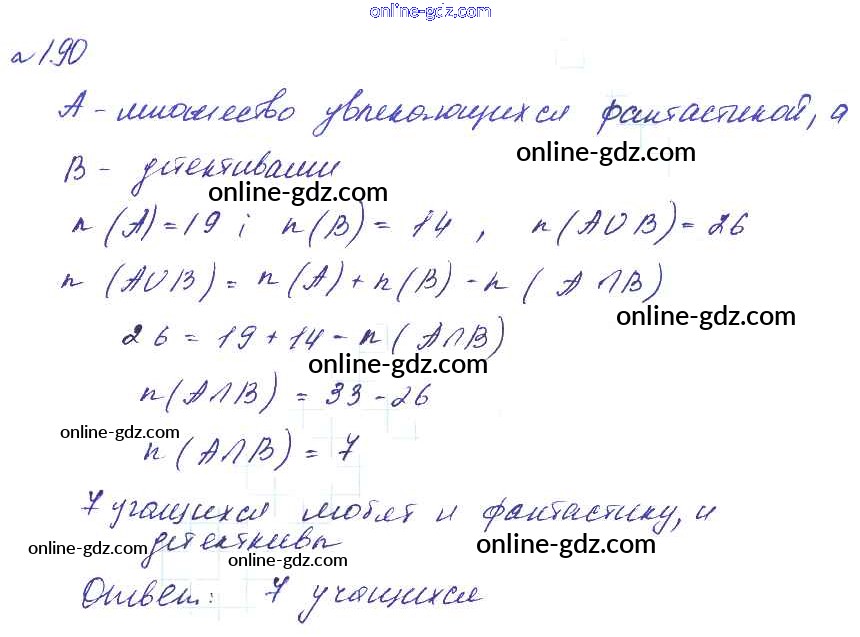 online-gdz.com
№190
A - множество увлекающихся фантастикой, а
online-gdz.com
B - детективами
online-gdz.com
n (A) = 19 ; n (B) = 14 , n (A ∪ B) = 26
n (A∪B) = n (A) + n (B) - n ( A ∩ B)
online-gdz.com
26 = 19 + 14 - n ( A∩B)
online-gdz.com
n (A∩B) = 33 - 26
online-gdz.com
n (A∩B) = 7
7 учащихся любят и фантастику, и
online-gdz.com детективы online-gdz.com
online-gdz.com
Ответ: 7 учащихся